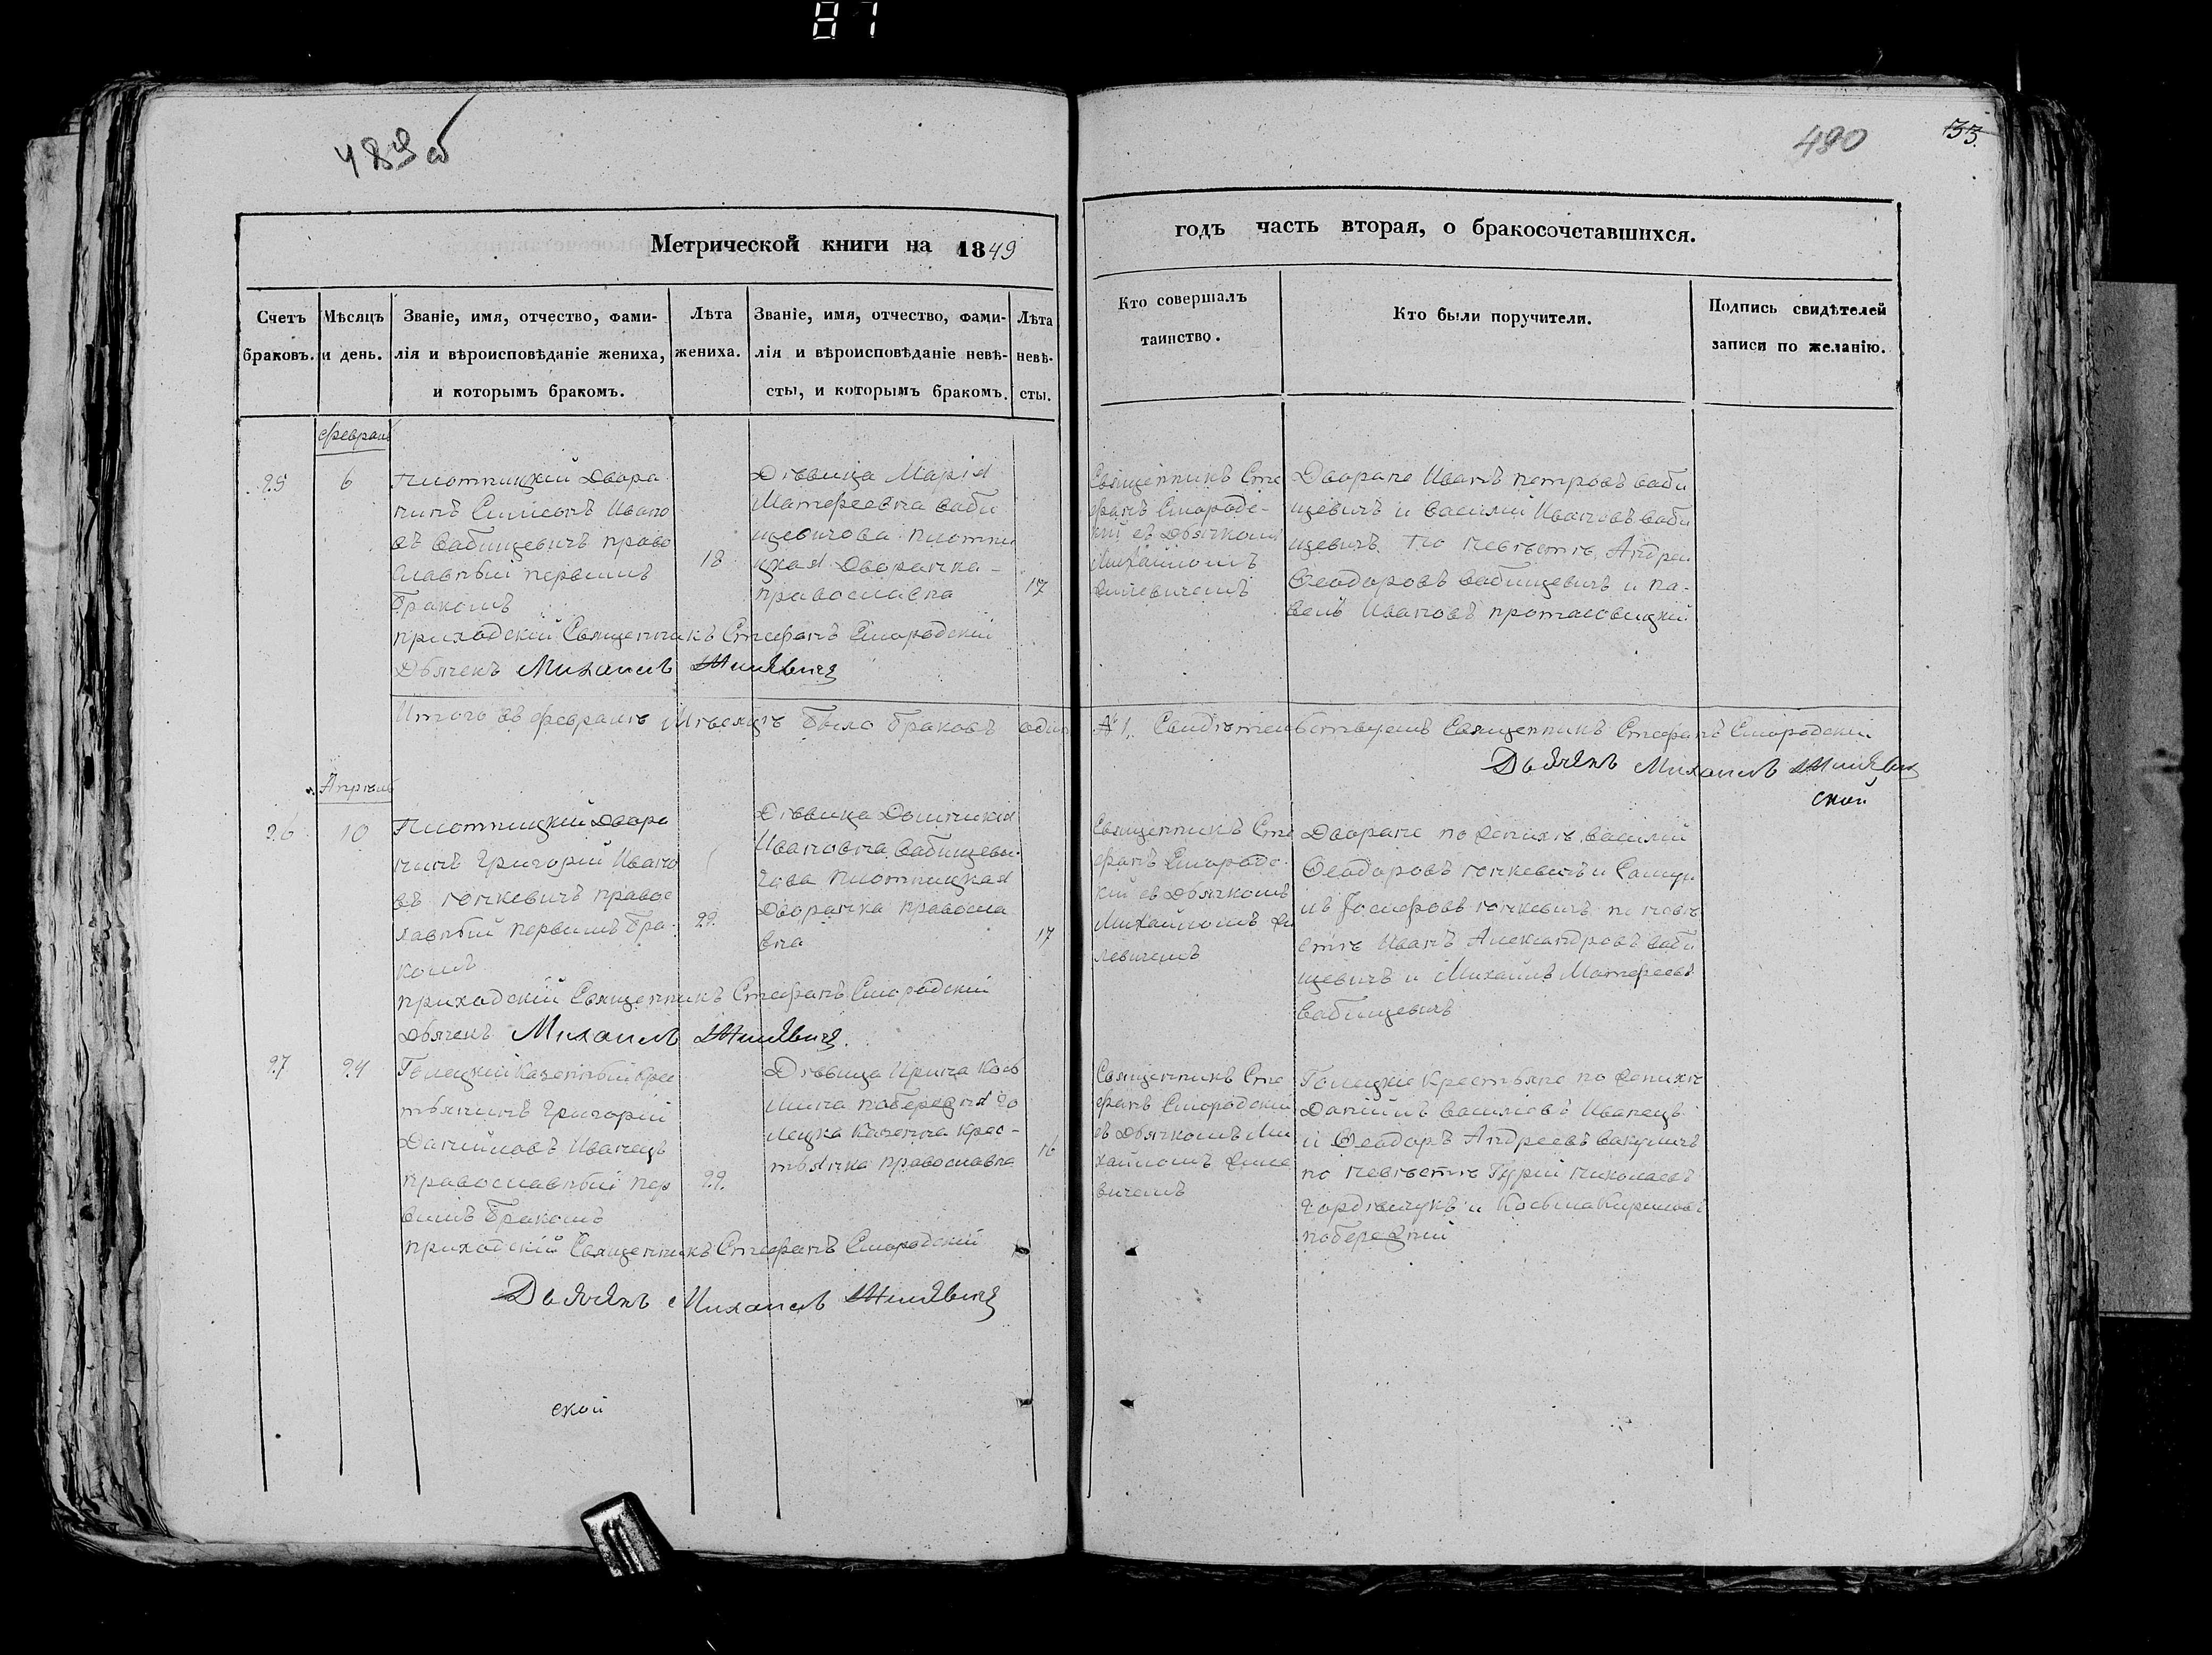 87
489 об
490
33.
Метрической книги на 1849
годъ часть вторая, о бракосочетавшихся.
Счетъ браковъ.
Мѣсяцъ и день.
Званіе, имя, отчество, фами-
лія и вѣроисповѣданіе жениха,
и которымъ бракомъ.
Лѣта
жениха.
Званіе, имя, отчество, фами-
лія и вѣроисповѣданіе невѣ-
сты, и которымъ бракомъ.
Лѣта
невѣ-
сты.
Кто совершалъ
таинство.
Кто были поручители.
Подпись свидѣтелей
записи по желанію.
Февраль
25
6
Плотницкій Дворя
нинъ Симеонъ Ивано
въ Вабищевичъ право
славный первымъ
бракомъ
18
Дѣвица Марія
Матфеевна Ваби
щевичова Плотни
цкая Дворянка -
православна
17
Священникъ Сте
фанъ Смородс-
кій съ Дьячкомъ
Михайломъ
Жилевичемъ
Дворяне Иванъ Петровъ Ваби
щевичъ и Василій Ивановъ Ваби
щевичъ. По невѣстѣ, Андрей
Феодоровъ Вабищевичъ и Па-
велъ Ивановъ Протасовицкій.
приходскій Священникъ Стефанъ Смородскій
Дьячекъ Михаилъ Жилѣвичъ
Итого въ февралѣ Мѣсяцѣ было браковъ одинъ
№ 1. Свидѣтельствуемъ Священникъ Стефанъ Смородскій
Дьячекъ Михаилъ Жилѣвич
ской
Апрѣль
26
10
Плотницкій Дворя
нинъ Григорій Ивано
въ Гочкевичъ правос
лавный первымъ бра-
комъ
22.
Дѣвица Домникія
Ивановна Вабищеви-
чова Плотницкая
Дворянка правосла
вна
17
Священникъ Сте
фанъ Смородс-
кій съ Дьячкомъ
Михайломъ Жи
левичемъ
Дворяне по женихѣ, Василій
Феодоровъ Гочкевичъ и Самуи
лъ Іосифовъ Гочкевичъ по невѣ
стѣ Иванъ Александровъ Ваби
щевичъ и Михайлъ Матфеевъ
Вабищевичъ
приходскій Священникъ Стефанъ Смородскій
Дьячекъ Михаилъ Жилѣвичъ.
27
24
Голецкій Казенный Крес
тьянинъ Григорій
Данійловъ Иванецъ
православный пер
вымъ бракомъ
22.
Дѣвица Ирина Кось
мина Побережня Го
лецка Казенна Крес-
тьянка православна
16
Священникъ Сте
фанъ Смородскій
съ Дьячкомъ Ми
хайломъ Жиле
вичемъ
Голецкіе Крестьяне по женихѣ
Данійлъ Василіевъ Иванецъ
и Феодоръ Андреевъ Вакуличъ
по невѣстѣ Гурій Николаевъ
и Косьма Кириловъ
Побережній
приходскій Священникъ Стефанъ Смородскій
Дьячекъ Михаилъ Жилѣвичъ
ской